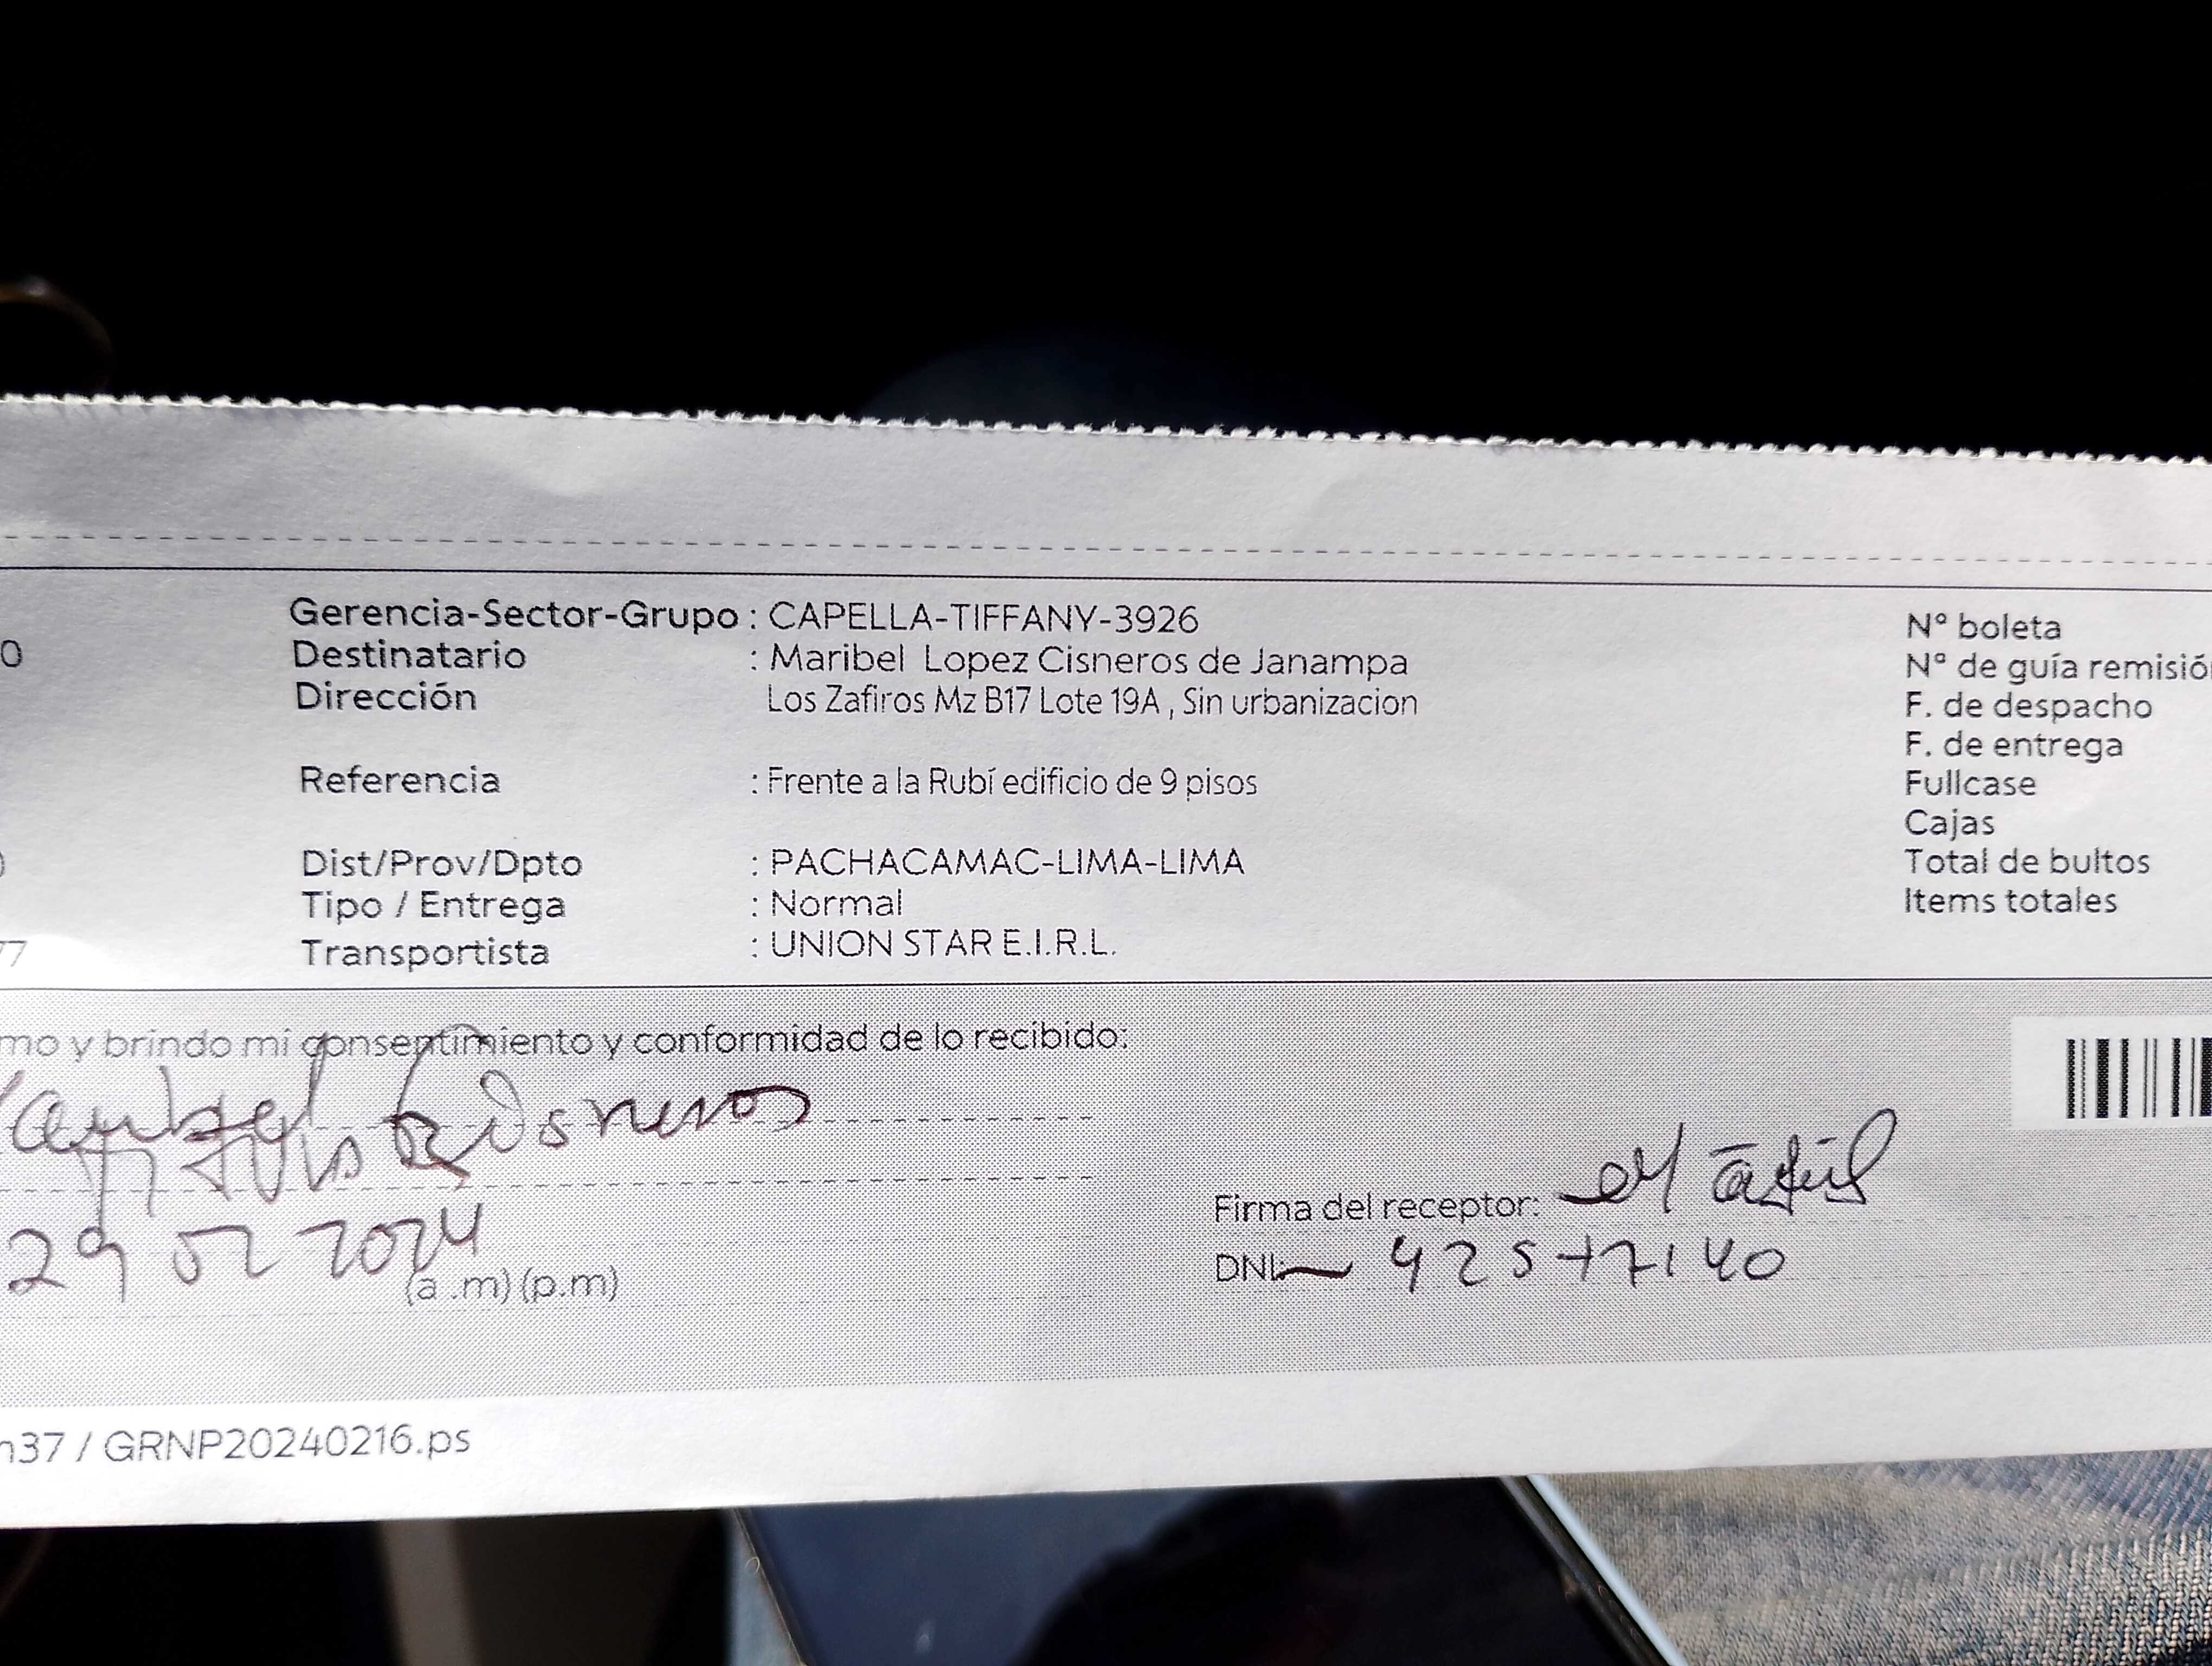 Gerencia-Sector-Grupo : CAPELLA-TIFFANY-3926
0 Destinatario : Maribel Lopez Cisneros de Janampa
Dirección Los Zafiros Mz B17 Lote 19A , Sin urbanizacion
Referencia : Frente a la Rubí edificio de 9 pisos
Dist/Prov/Dpto : PACHACAMAC-LIMA-LIMA
Tipo / Entrega : Normal
77 Transportista : UNION STAR E.I.R.L.
N° boleta
N° de guía remisió
F. de despacho
F. de entrega
Fullcase
Cajas
Total de bultos
Items totales
mo y brindo mi consentimiento y conformidad de lo recibido:
Cisneros
29 02 2024
(a .m) (p.m)
Firma del receptor:
DNI: 42577140
n37 / GRNP20240216.ps